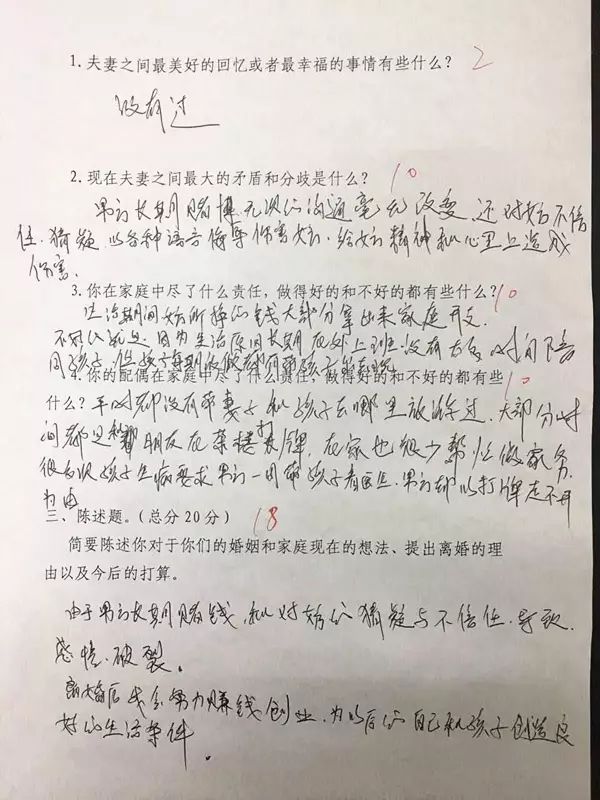 1. 夫妻之间最美好的回忆或者最幸福的事情有些什么？ 2
没有过
2. 现在夫妻之间最大的矛盾和分歧是什么？ 10
男方长期赌博，无次的沟通毫无改变，还对女方不信
任，猜疑，以各种语言侮辱伤害女方，给女方精神和心里上造成
伤害。
3. 你在家庭中尽了什么责任，做得好的和不好的都有些什么？ 10
生活期间女方所挣的钱大部分拿出来家庭开支。
不好的就是因为生活原因长期在外上班没有太多时间
孩子
4. 你的配偶在家庭中尽了什么责任，做得好的和不好的都有些
什么？ 10 平时都没有带妻子和孩子去哪里放松过，大部分时
间都是和朋友在茶楼打牌，在家也很少帮忙做家务，
很多次孩子生病要求男方一同带孩子看医生，男方却以打牌走不开
为由
三、陈述题。（总分20分） 18
简要陈述你对于你们的婚姻和家庭现在的想法、提出离婚的理
由以及今后的打算。
由于男方长期赌钱，和对女方的猜疑与不信任，导致
感情破裂。
离婚后我会努力赚钱创业，为以后的自己和孩子创造良
好的生活条件。